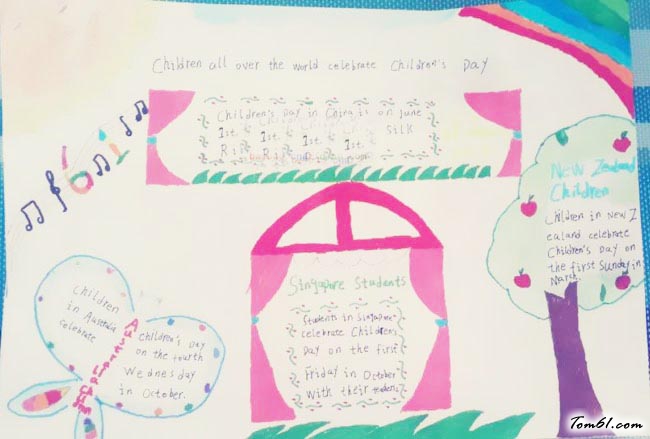 Children all over the world celebrate Children's Day
Children's Day in China is on June
1st. 1st. 1st. 1st. Silk
6.1
New Zealand
Children
Children in New Z
ealand celebrate
Children's Day on
the first Sunday in
March.
Singapore Students
Students in Singapore
celebrate Children
Day on the first
Friday in October
with their
Children
in Australia
celebrate
Children's Day
on the fourth
Wednesday
in October.
Tom61.com